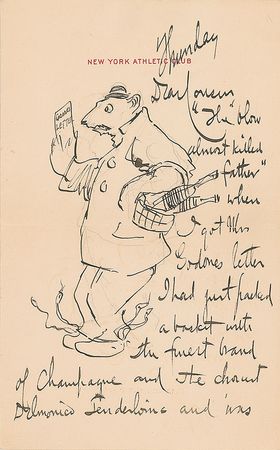 Thursday
NEW YORK ATHLETIC CLUB
Dear Cousin
"The blow
almost killed
father"
when
I got Mrs
letter
I had just packed
a basket with
the finest brand
of Champagne and the choicest
Delmonico Tenderloins and was